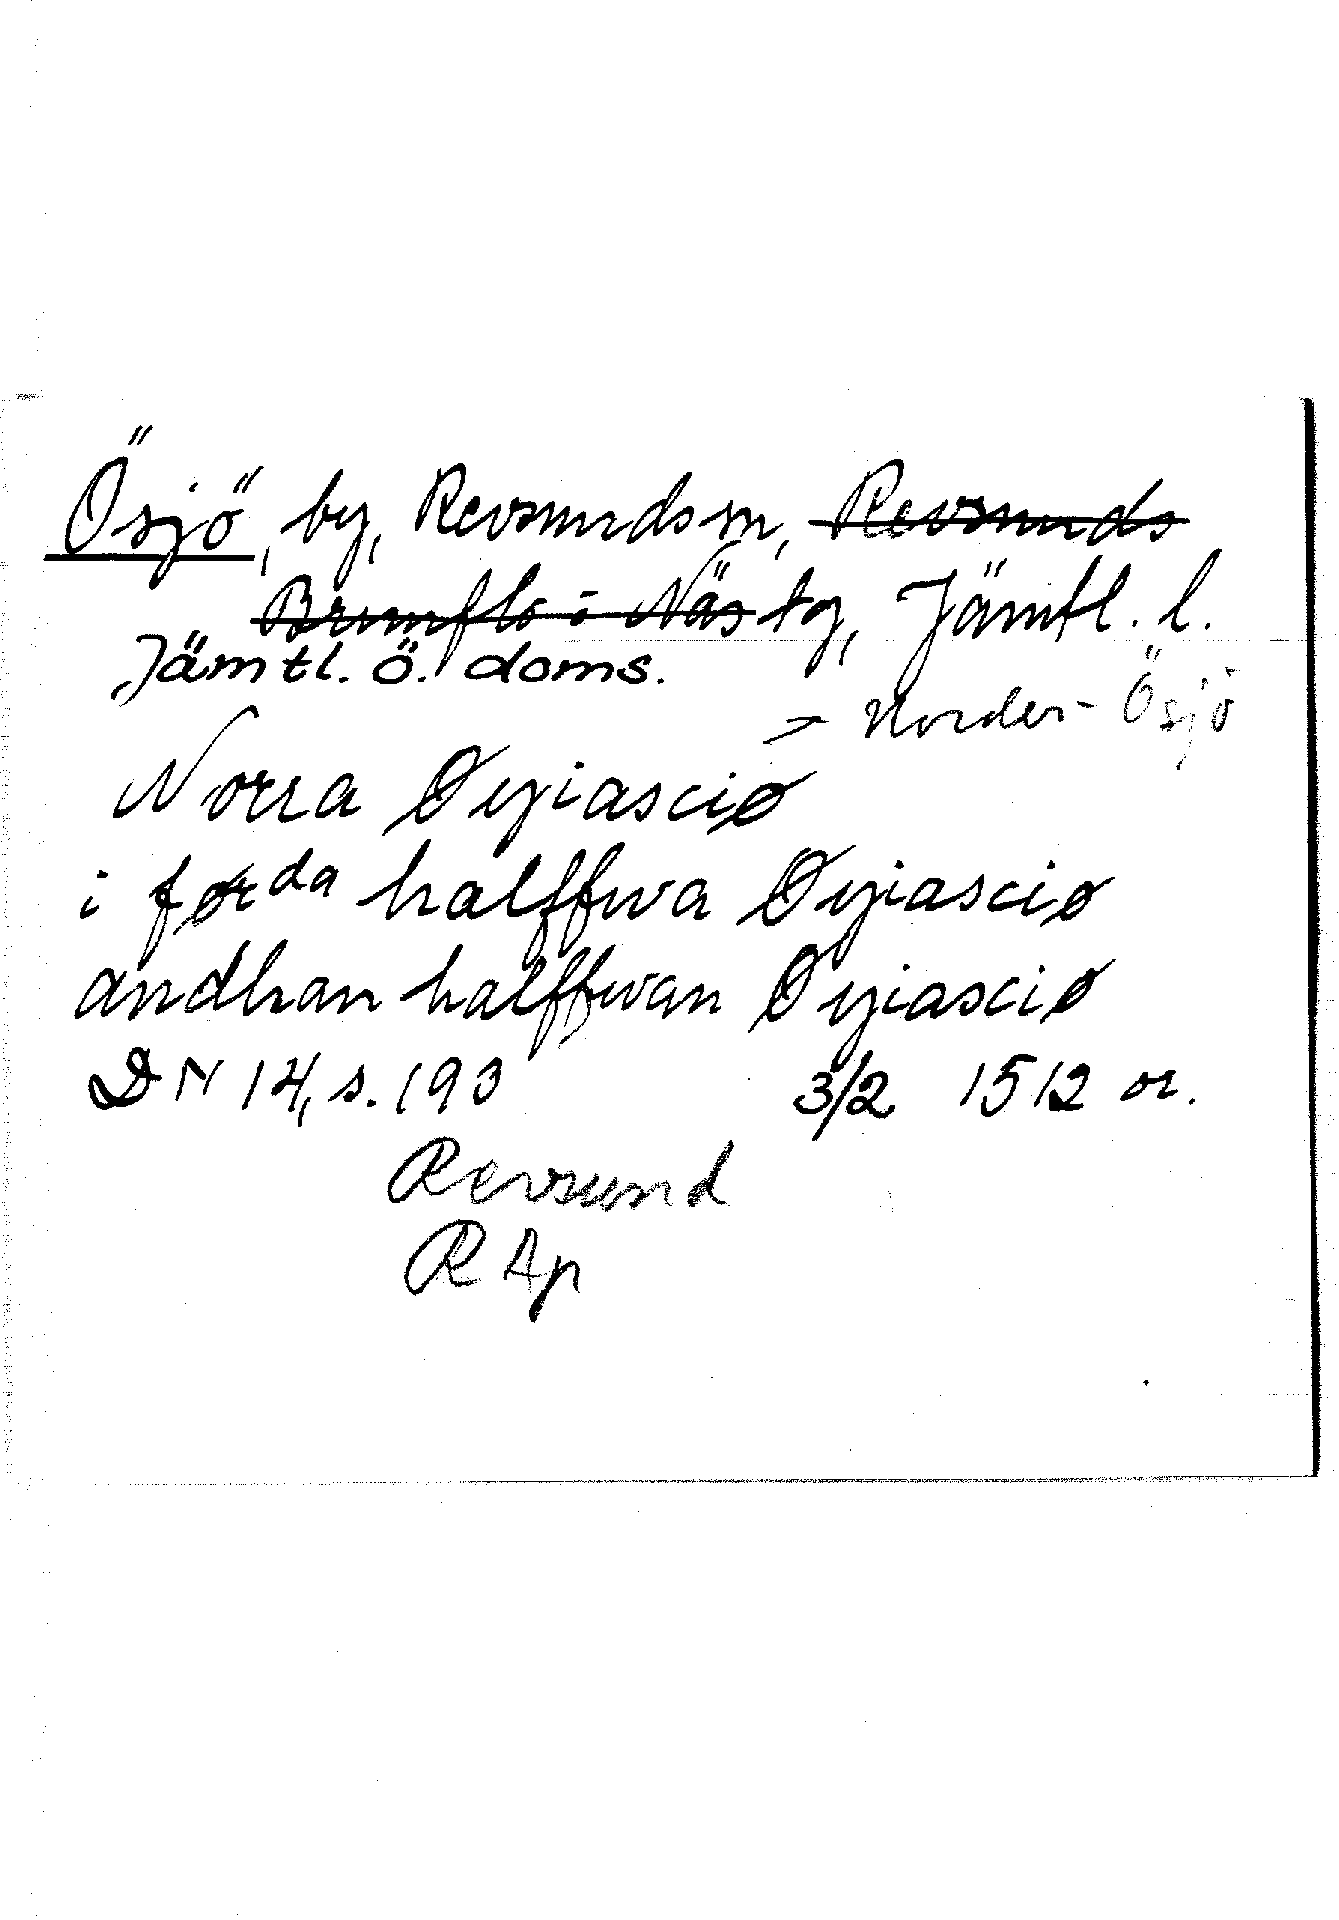 Ösjö, by, Revsunds sn, Revsunds
Brunflo o Näs tg, Jämtl. l.
Jämtl. ö. doms.
> Norder-Ösjö
Norra Øyiasciø
i førda halffwa Øyiasciø
andhan halffwan Øyiasciø
DN 14, s. 193 3/2 1512 or.
Revsund
R Ap